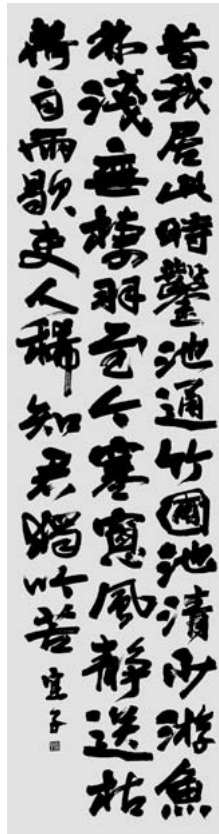 昔我居此時鑿池通竹圃池清少游魚
林淺無棲羽至今寒窗風靜送枯
荷自雨歇吏人稀知君獨吟苦